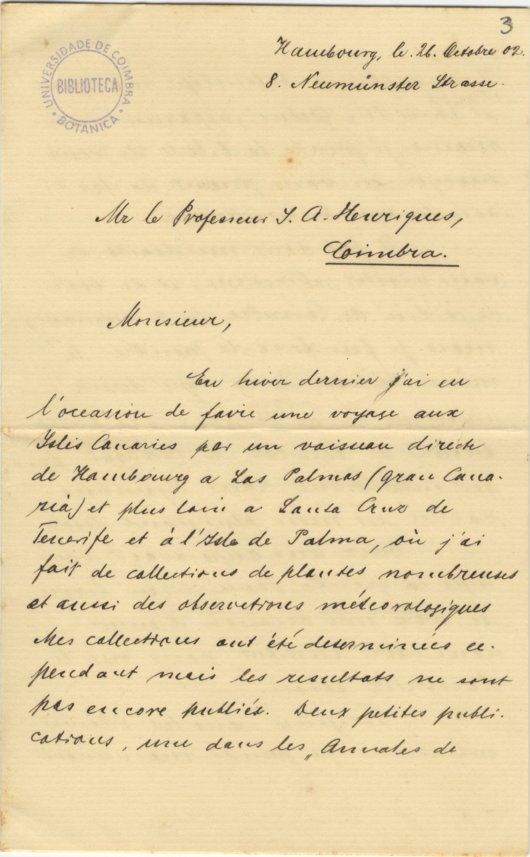 3
UNIVERSIDADE DE COIMBRA
BIBLIOTECA
BOTANICA
Hambourg, le 26. Octobre 02.
8. Neumünster Strasse.
Mr le Professeur J. A. Henriques,
Coimbra.
Monsieur,
En hiver dernier j'ai eu
l'occasion de favie une voyage aux
Isles Canaries par un vaisseau directe
de Hambourg a Las Palmas (Gran Cana-
ria) et plus loin a Santa Cruz de
Tenerife et à l'Isle de Palma, où j'ai
fait de collections de plantes nombreuses
et aussi des observations météorologiques
Mes collections ont été determinées ce-
pendant mais les resultats ne sont
pas encore publiés. Deux petites publi-
cations, une dans les „Annales de